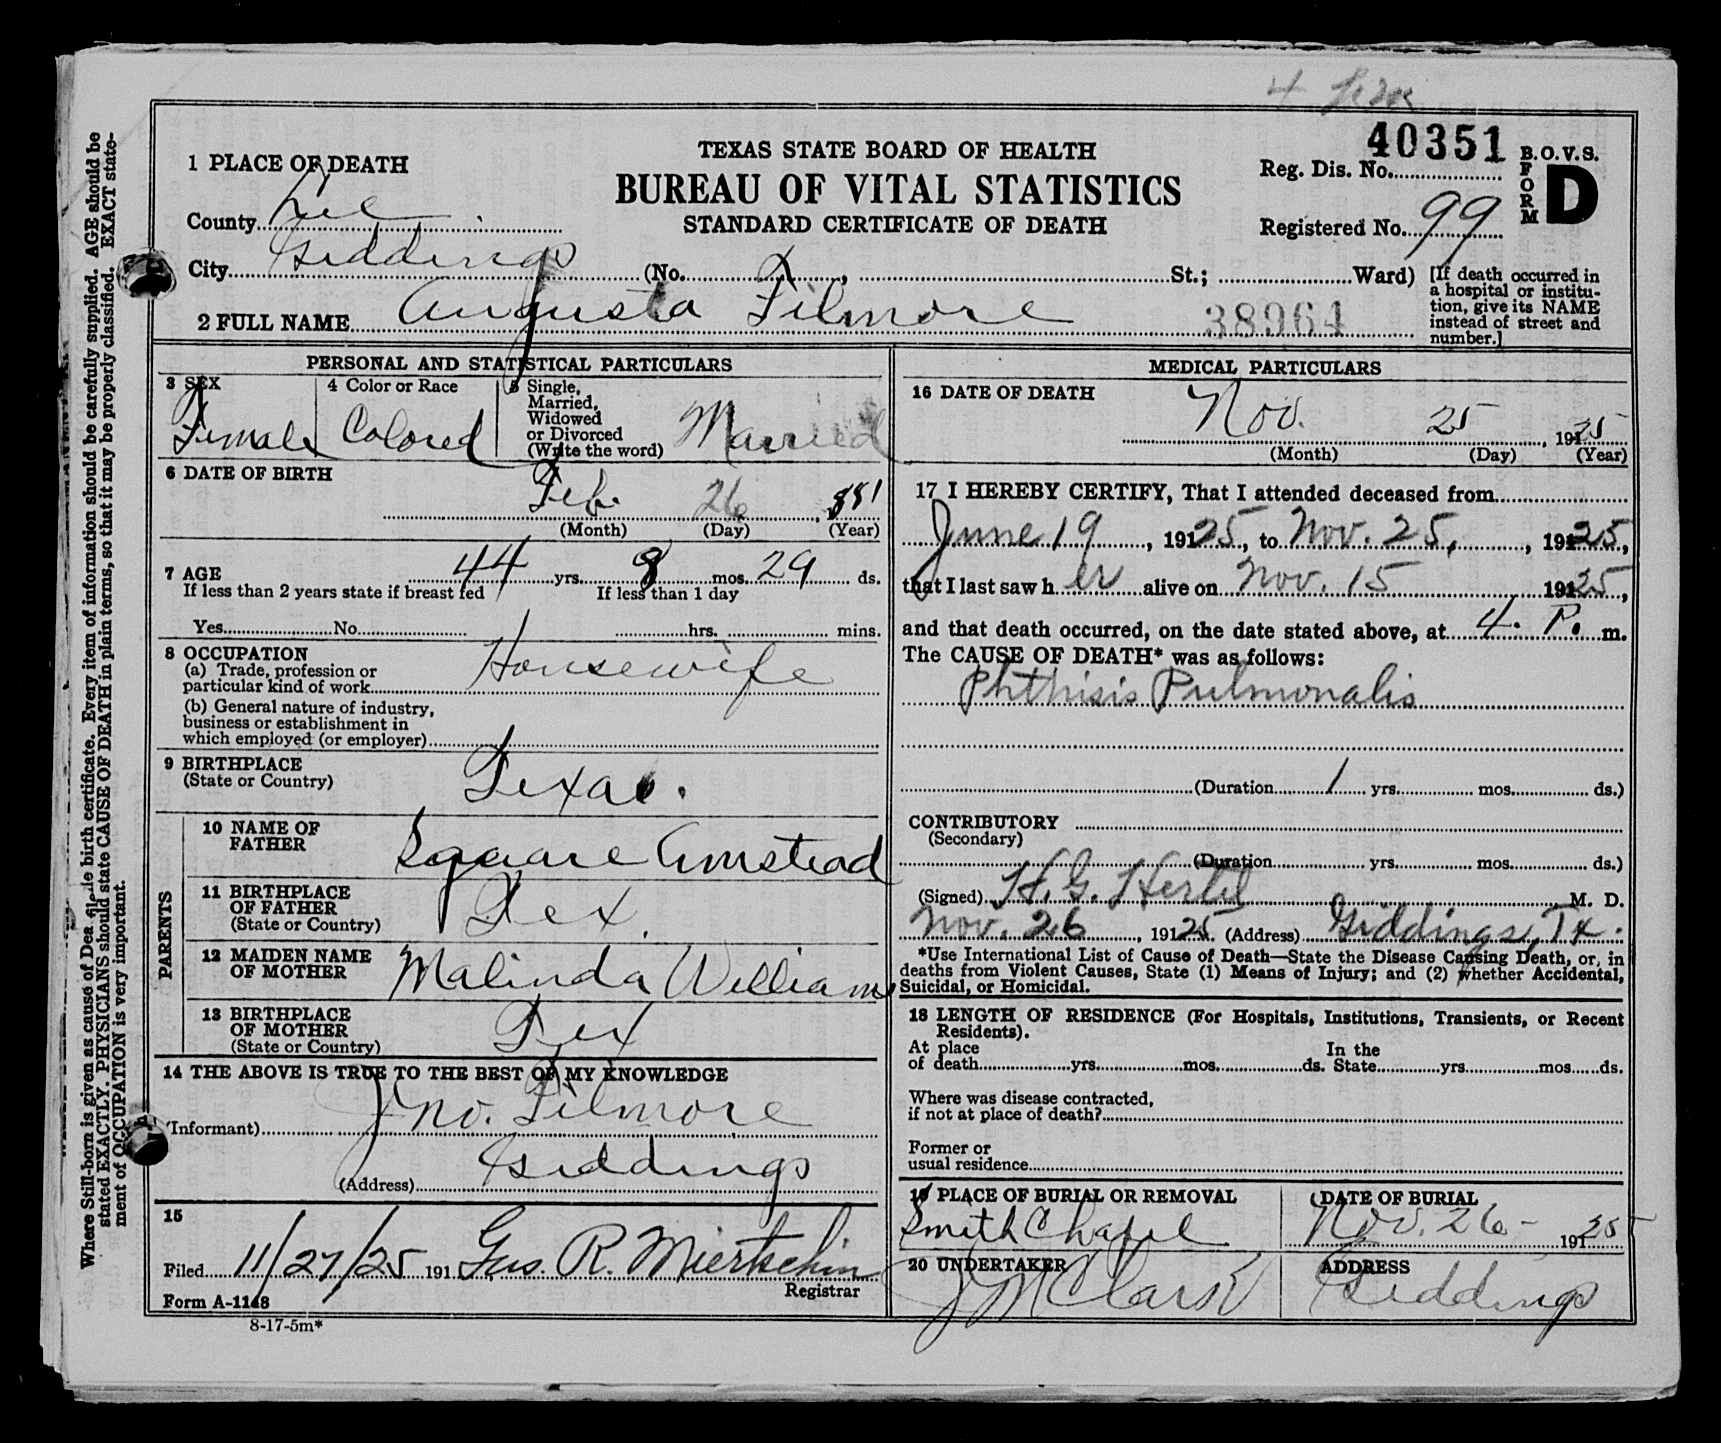 40351
TEXAS STATE BOARD OF HEALTH
BUREAU OF VITAL STATISTICS
STANDARD CERTIFICATE OF DEATH
B.O.V.S.
FORM D
Reg. Dis. No.
Registered No. 99
1 PLACE OF DEATH
County Lee
City Giddings (No. , St.; Ward)
[If death occurred in a hospital or institution, give its NAME instead of street and number.]
2 FULL NAME Augusta Filmore
38964
PERSONAL AND STATISTICAL PARTICULARS
3 SEX
Female
4 Color or Race
Colored
5 Single, Married, Widowed or Divorced (Write the word)
Married
6 DATE OF BIRTH
Feb. 26, 881
(Month) (Day) (Year)
7 AGE 44 yrs. 8 mos. 29 ds.
If less than 2 years state if breast fed If less than 1 day
Yes No hrs. mins.
8 OCCUPATION
(a) Trade, profession or
particular kind of work Housewife
(b) General nature of industry,
business or establishment in
which employed (or employer)
9 BIRTHPLACE
(State or Country) Texas.
PARENTS
10 NAME OF FATHER Sqaure Armstead
11 BIRTHPLACE OF FATHER (State or Country) Tex.
12 MAIDEN NAME OF MOTHER Malinda Williams
13 BIRTHPLACE OF MOTHER (State or Country) Tex
14 THE ABOVE IS TRUE TO THE BEST OF MY KNOWLEDGE
(Informant) Jno. Filmore
(Address) Giddings
15
Filed 11/27/25 191 Gus. R. Miertschin
Registrar
Form A-1148
8-17-5m*
MEDICAL PARTICULARS
16 DATE OF DEATH
Nov. 25, 1925
(Month) (Day) (Year)
17 I HEREBY CERTIFY, That I attended deceased from
June 19, 191 25, to Nov. 25, , 191 25,
that I last saw h er alive on Nov. 15 191 25,
and that death occurred, on the date stated above, at 4. P. m.
The CAUSE OF DEATH* was as follows:
Phthisis Pulmonalis
(Duration 1 yrs. mos. ds.)
CONTRIBUTORY
(Secondary)
(Duration yrs. mos. ds.)
(Signed) H. G. Hertel M. D.
Nov. 26, 191 25. (Address) Giddings, Tx.
*Use International List of Cause of Death—State the Disease Causing Death, or, in
deaths from Violent Causes, State (1) Means of Injury; and (2) whether Accidental,
Suicidal, or Homicidal.
18 LENGTH OF RESIDENCE (For Hospitals, Institutions, Transients, or Recent
Residents).
At place In the
of death yrs. mos. ds. State yrs. mos. ds.
Where was disease contracted,
if not at place of death?
Former or
usual residence
19 PLACE OF BURIAL OR REMOVAL
Smith Chapel
DATE OF BURIAL
Nov. 26 - 191 25
20 UNDERTAKER
J M Clark
ADDRESS
Giddings
Where Still-born is given as cause of Death birth certificate. Every item of information should be carefully supplied. AGE should be
stated EXACTLY. PHYSICIANS should state CAUSE OF DEATH in plain terms, so that it may be properly classified. EXACT state-
ment of OCCUPATION is very important.